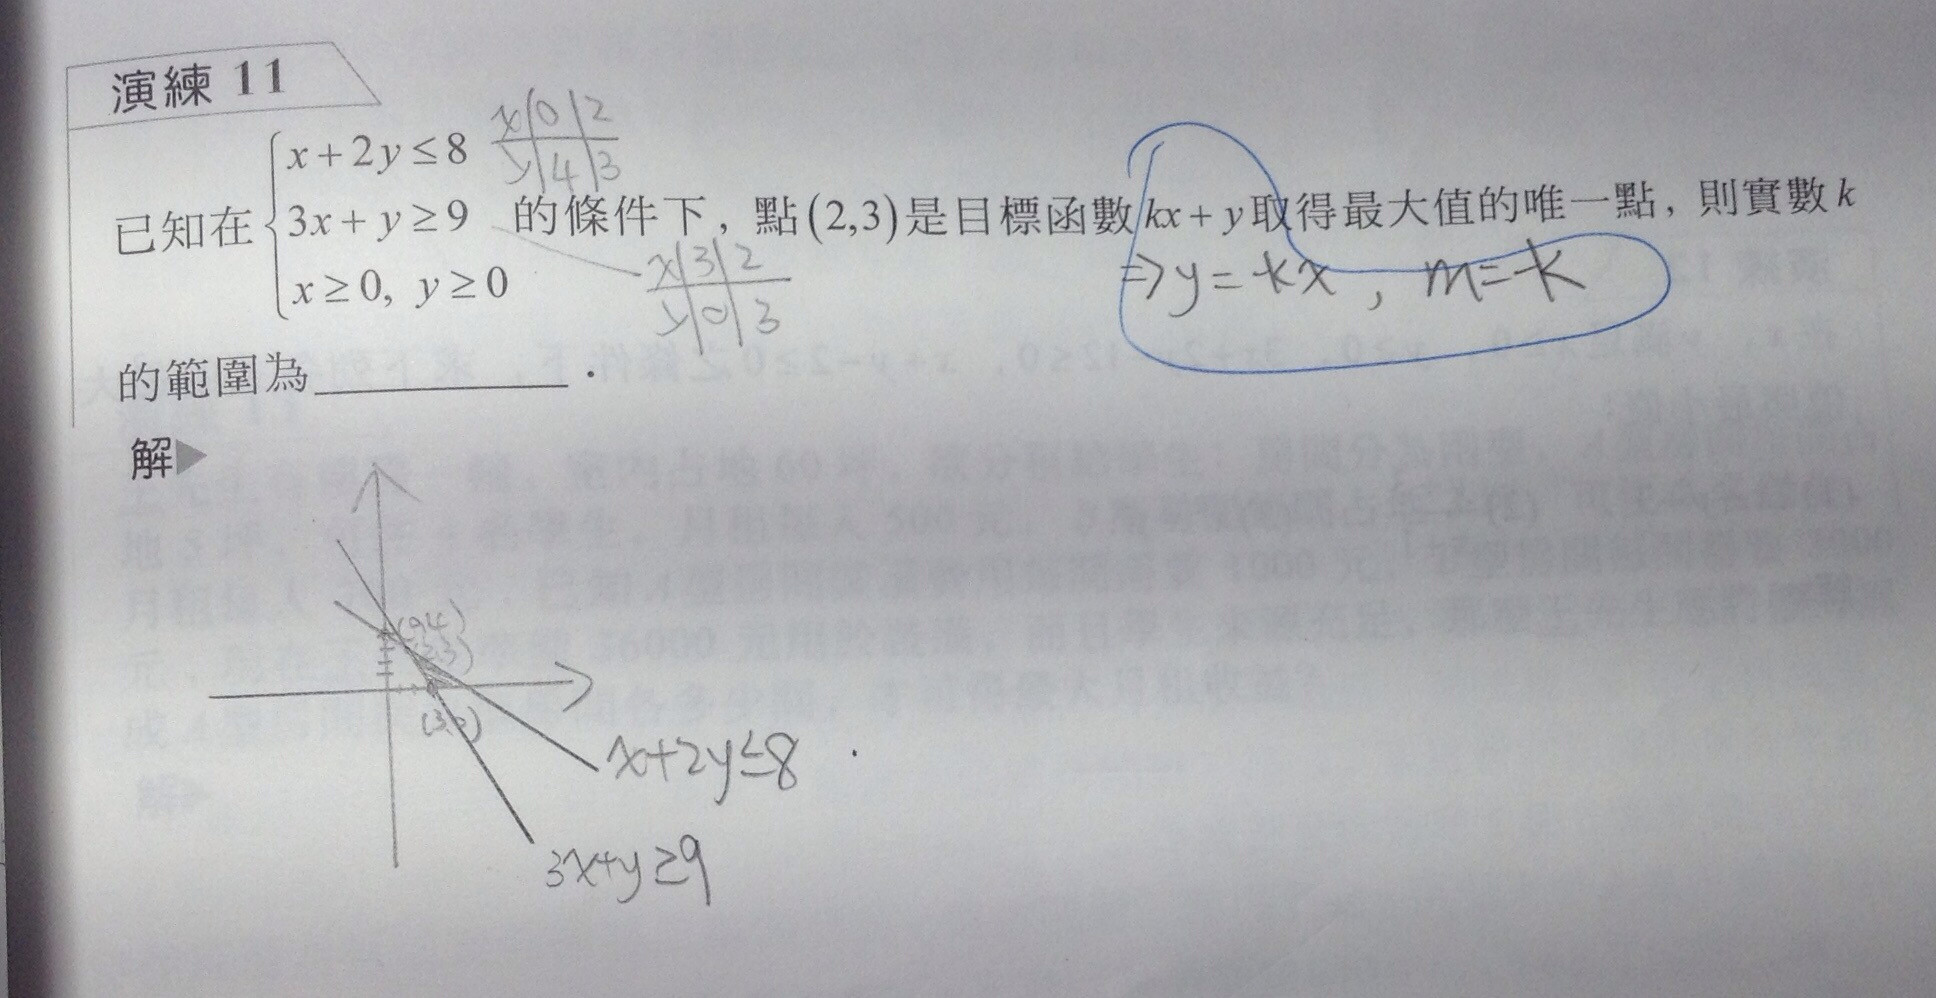 演練 11
x+2y≤8
x 0 2
y 4 3
已知在 3x+y≥9 的條件下，點(2,3)是目標函數kx+y取得最大值的唯一點，則實數k
x≥0, y≥0
x 3 2
y 0 3
⇒y=-kx, m=-k
的範圍為________．
解▶
(0,4)
(2,3)
(3,0)
x+2y≤8
3x+y≥9